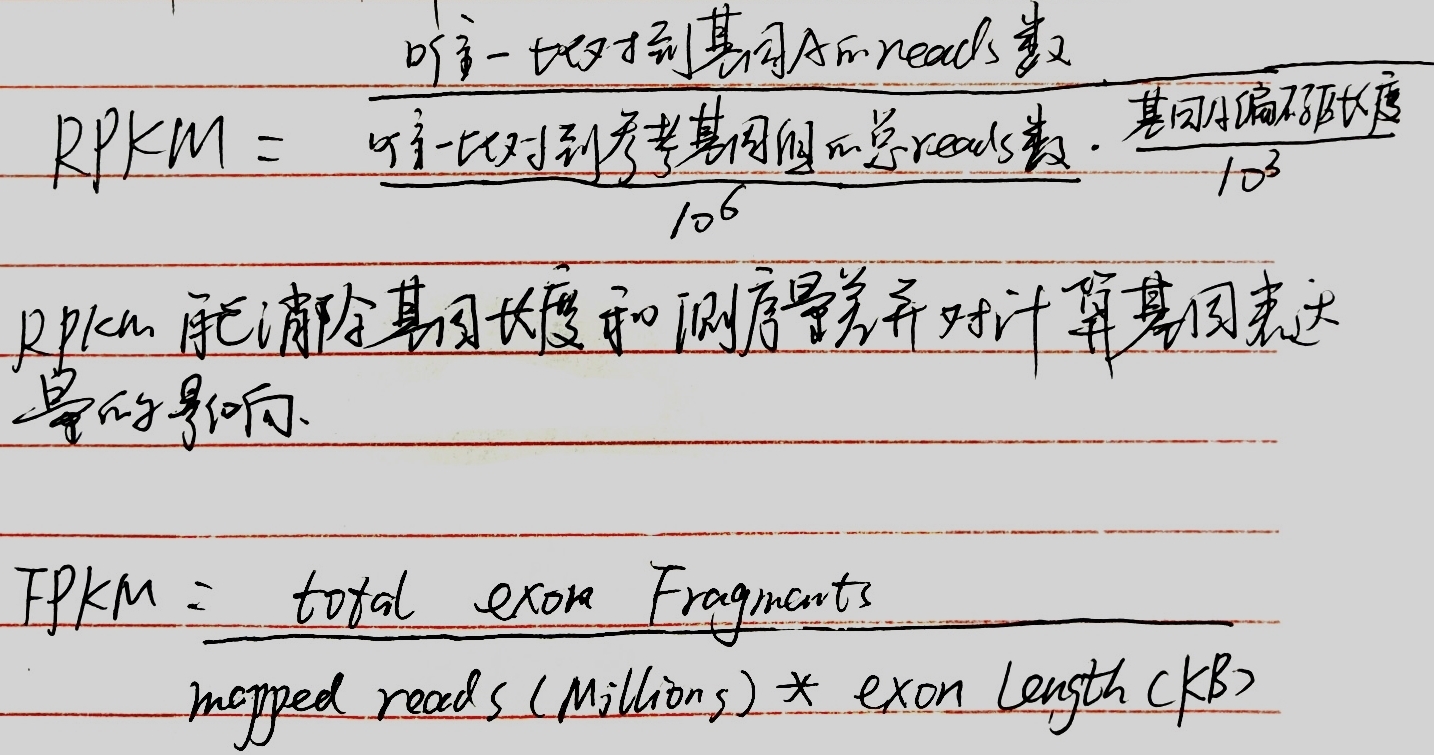 唯一比对到基因A的reads数
RPKM = 唯一比对到参考基因组的总reads数 · 基因A编码区长度
10⁶ 10³
RPKM 能消除基因长度和测序量差异对计算基因表达
量的影响.
FPKM = total exon Fragments
mapped reads (Millions) * exon Length (KB)